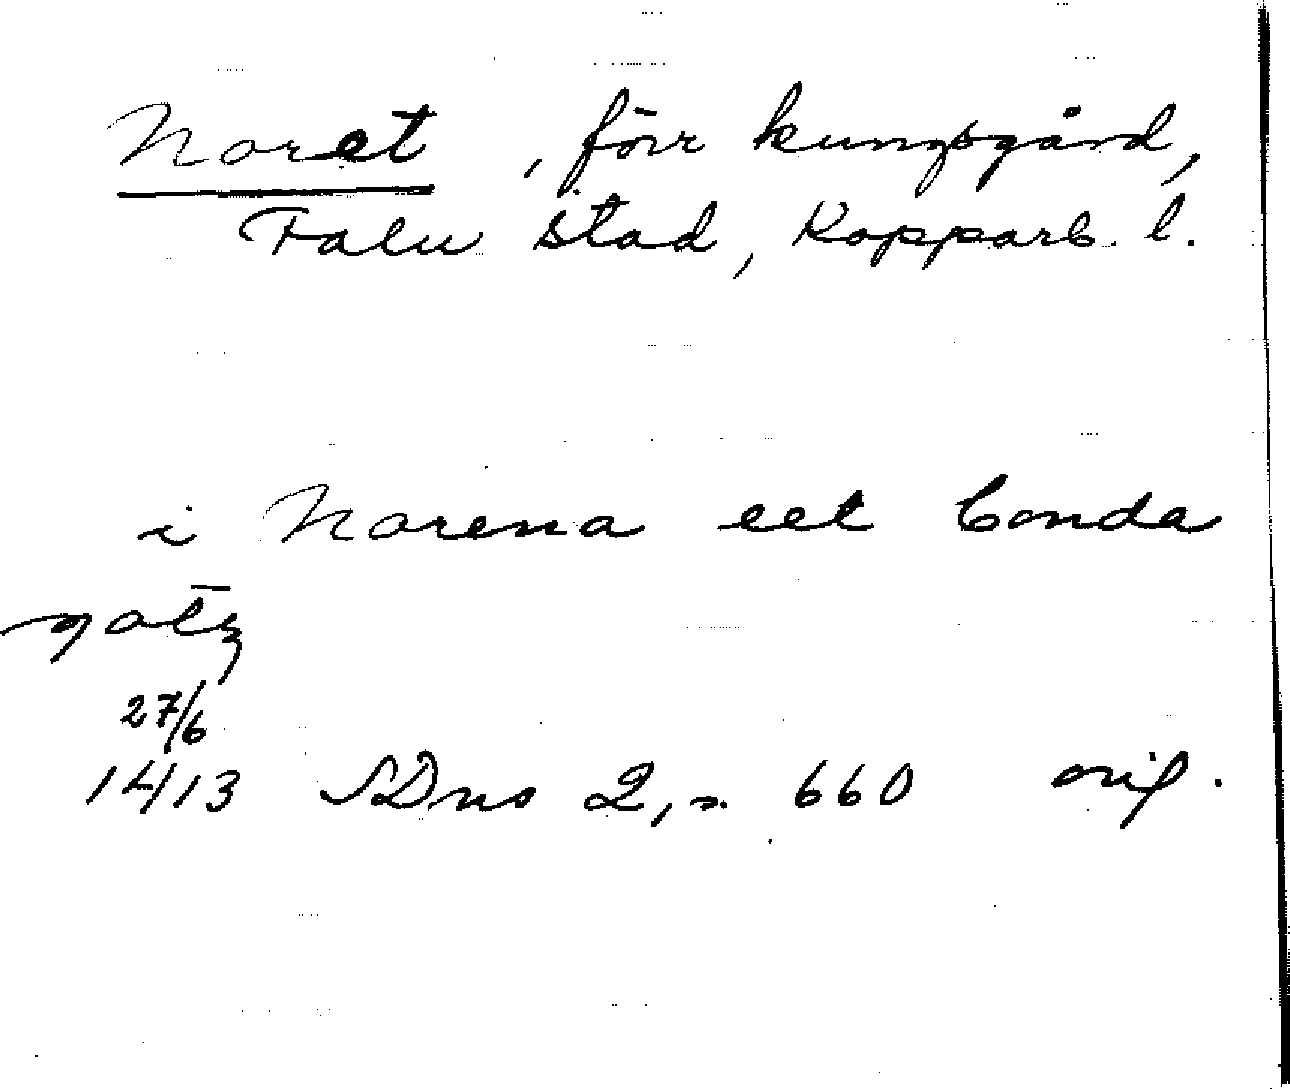 Noret, förr kungsgård,
Falu stad, Kopparb. l.
i Norena eet bonda
gotz
27/6
1413 SDns 2, s. 660 orig.